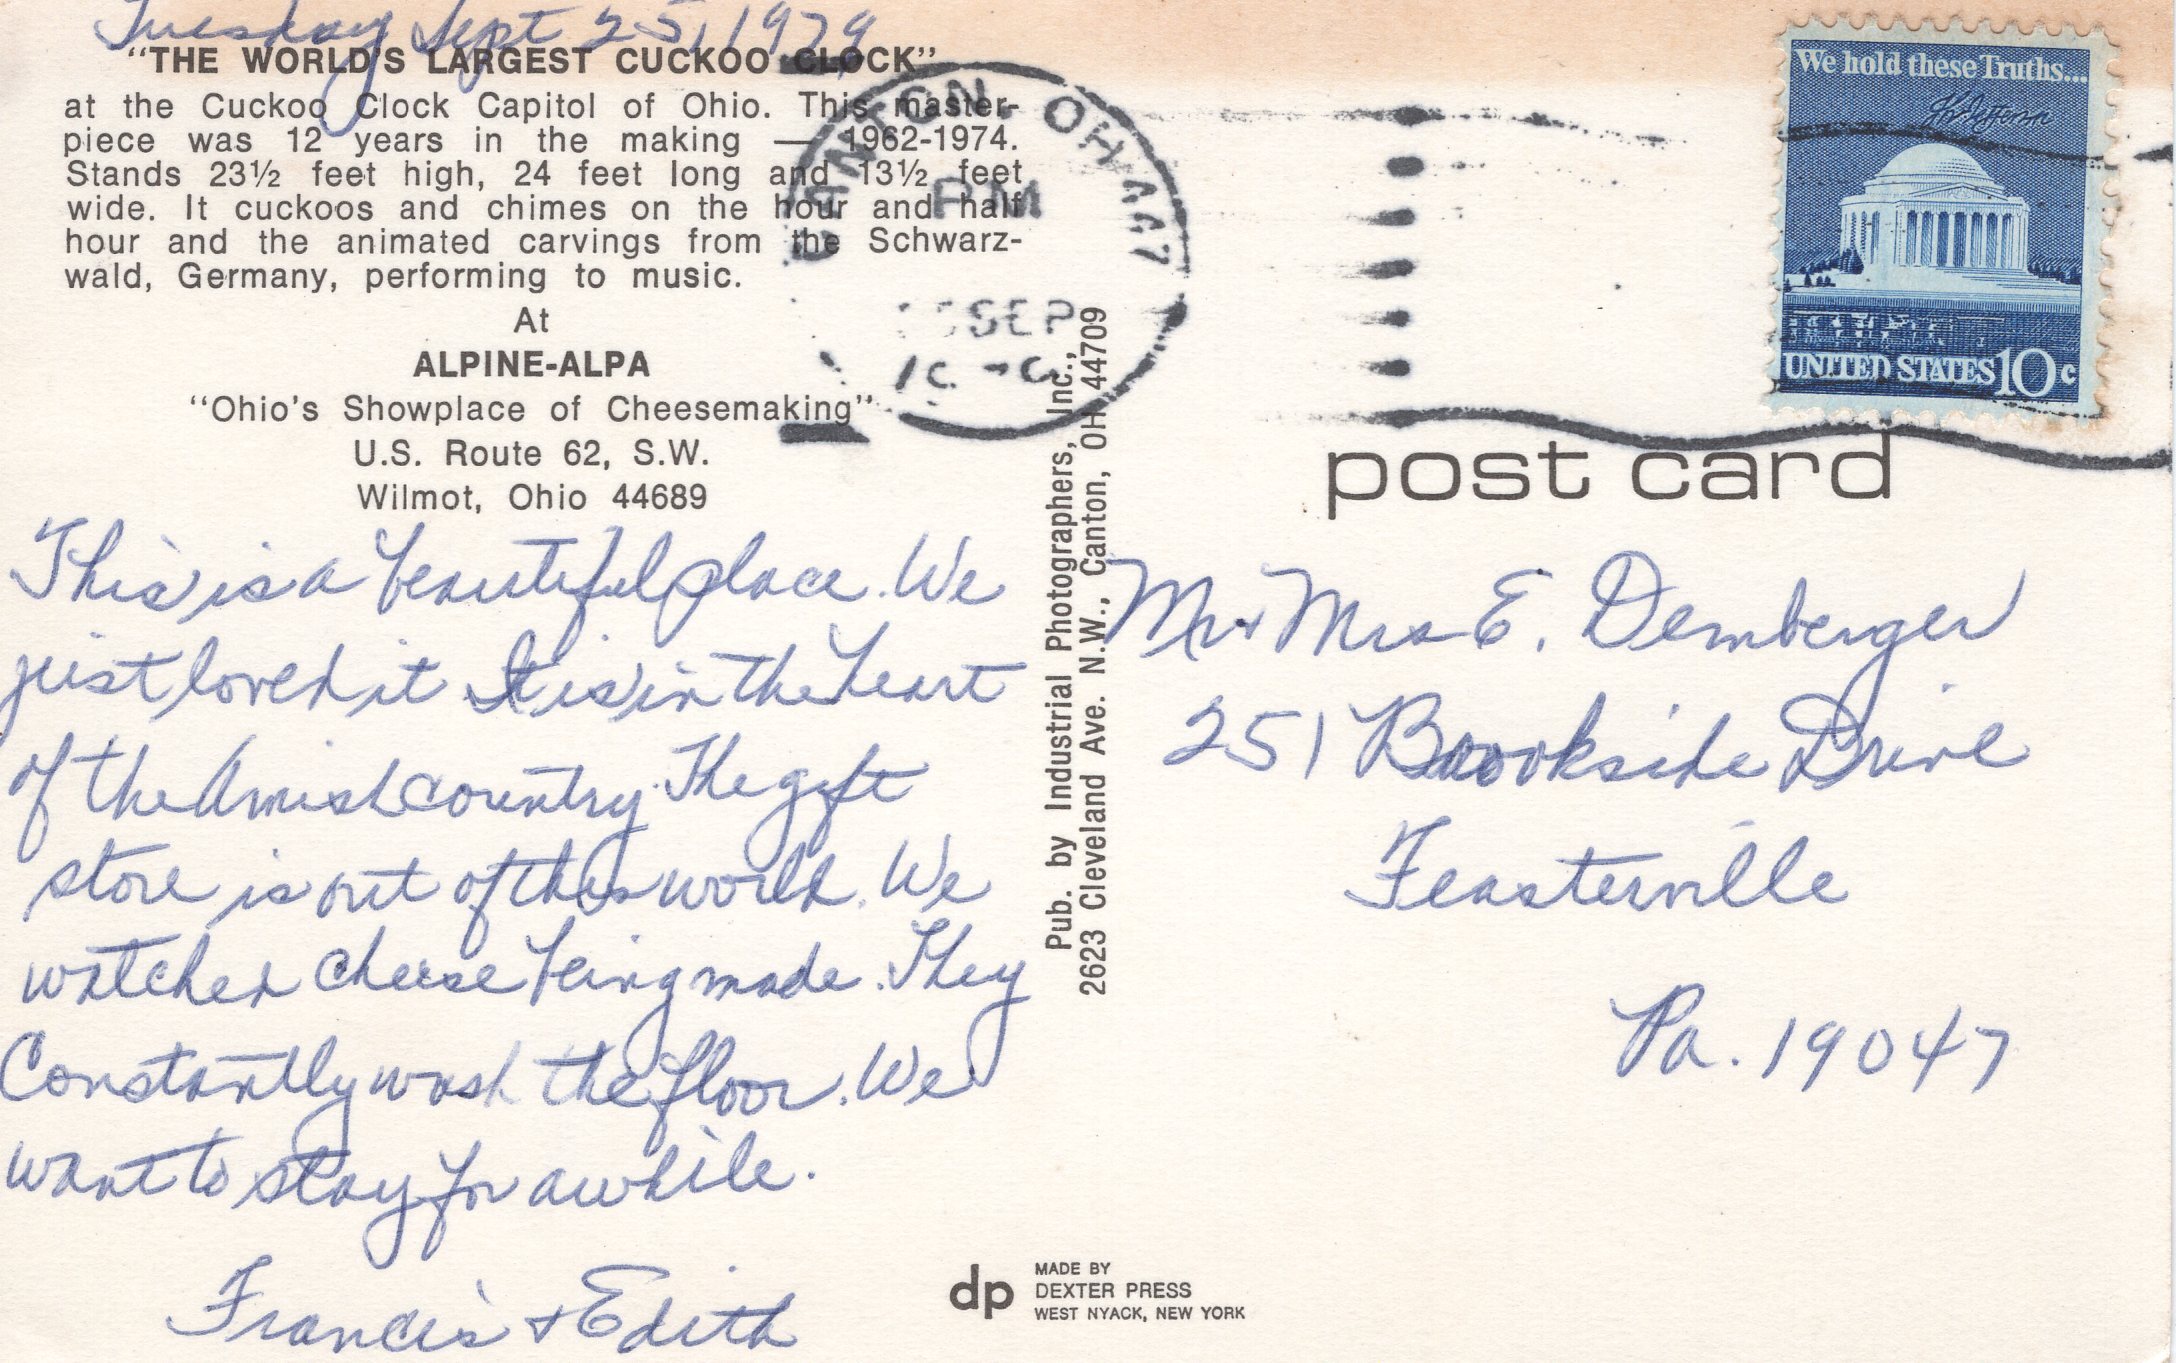 Tuesday Sept 25, 1979
"THE WORLD'S LARGEST CUCKOO CLOCK"
at the Cuckoo Clock Capitol of Ohio. This master-
piece was 12 years in the making — 1962-1974.
Stands 23½ feet high, 24 feet long and 13½ feet
wide. It cuckoos and chimes on the hour and half
hour and the animated carvings from the Schwarz-
wald, Germany, performing to music.
At
ALPINE-ALPA
"Ohio's Showplace of Cheesemaking"
U.S. Route 62, S.W.
Wilmot, Ohio 44689
This is a beautiful place. We
just loved it It is in the heart
of the Amish country. The gift
store is out of this world. We
watched cheese being made. They
Constantly wash the floor. We
want to stay for awhile.
Francis + Edith
CANTON, OH 447
PM
SEP
We hold these Truths...
Th Jefferson
UNITED STATES 10c
post card
Pub. by Industrial Photographers, Inc.,
2623 Cleveland Ave. N.W., Canton, OH 44709
Mr + Mrs E. Demberger
251 Brookside Drive
Feasterville
Pa. 19047
dp
MADE BY
DEXTER PRESS
WEST NYACK, NEW YORK